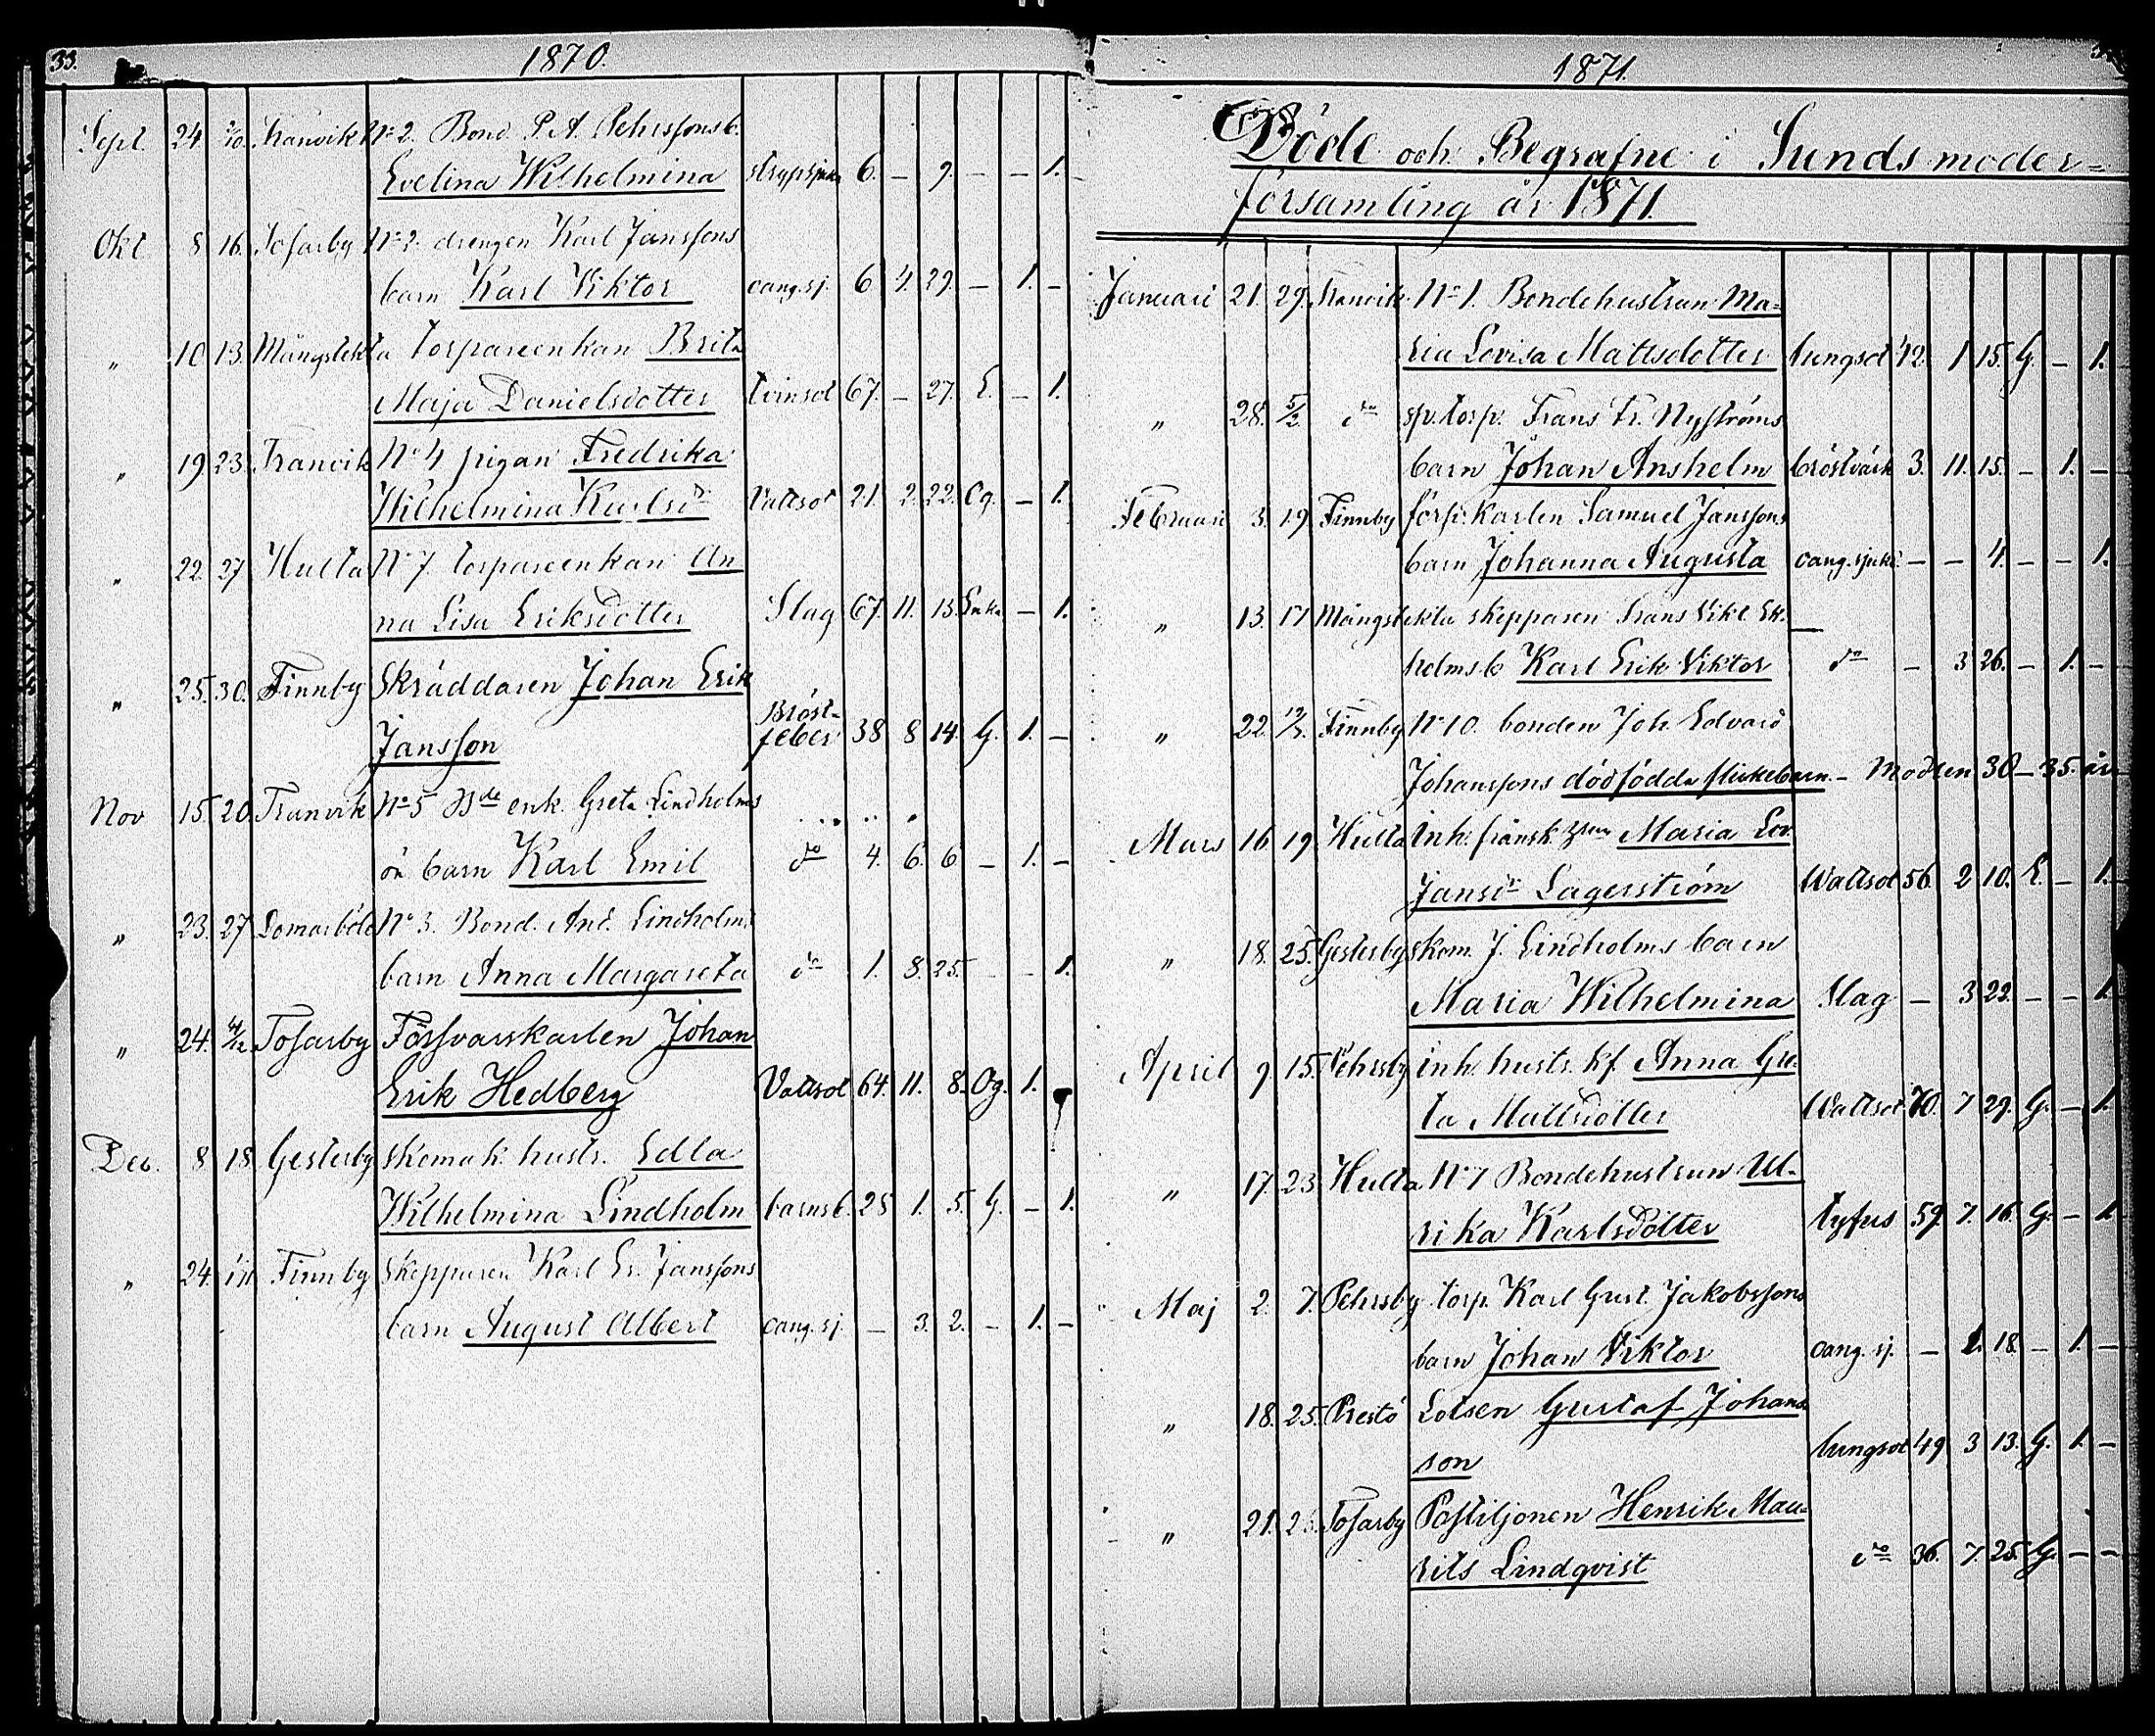 33.
1870.
Sept. 24. 2/10. Tranvik No 2. Bond. P. A. Pehrssons b.
Evelina Wilhelmina strypsjuka 6. – 9. – – 1.
Okt 8 16. Tosarby No 2. drengen Karl Janssons
barn Karl Viktor oang.sj. 6 4. 29. – 1. –
" 10 13. Mångstekta torpareenkan Brita
Maja Danielsdotter tvinsot 67. – 27. E. – 1.
" 19 23. Tranvik No 4 pigan Fredrika
Wilhelmina Karlsdr Vattsot 21. 2. 22. Og. – 1.
" 22 27 Hulta No 7. torpareenkan An
na Lisa Eriksdotter Slag 67. 11. 13. Enka – 1.
" 25. 30. Finnby Skräddaren Johan Erik
Jansson Bröst-
feber 38 8 14. G. 1. –
Nov 15. 20. Tranvik No 5 Bde enk. Greta Lindholms
barn Karl Emil do 4. 6. 6 – 1. –
" 23. 27 Domarböle No 3. Bond. And. Lindholms
barn Anna Margareta do 1. 8. 25. – – 1.
" 24. 4/12 Tosarby Försvarskarlen Johan
Erik Hedberg Vattsot 64. 11. 8. Og. 1.
Dec. 8 18. Gesterby skomak. hustr. Edla
Wilhelmina Lindholm barnsb. 28 1. 5. G. – 1.
" 24. 1/1 Finnby Skepparen Karl Er. Janssons
barn August Albert oang. sj. – 3. 2. – 1. –
1871.
Döde och Begrafne i Sunds moder=
församling år 1871.
Januari 21. 29. Tranvik No 1. Bondehustrun Ma=
ria Lovisa Mattsdotter lungsot 42. 1 15. G. – 1.
" 28. 5/2. do sp. torp. Frans Fr. Nyströms
barn Johan Anshelm bröstvärk 3. 11. 15. – 1. –
Februari 3. 19 Finnby förs. karlen Samuel Janssons
barn Johanna Augusta oang. sjukd. – – 4. – – 1.
" 13. 17 Mångstekta skepparen Frans Vikt. Ek-
holms b Karl Erik Viktor do – 3 26. – 1. –
" 22. 12/3. Finnby No 10. bonden Joh. Edvard
Johanssons dödfödda flickebarn. – Modren 30–35. år
Mars 16 19 Hulta Inh. Maria Lov.
Jansdr Lagerström Wattsot 56. 2 10. E. – 1.
" 18. 25. Gesterby skom. J. Lindholms barn
Maria Wilhelmina Slag – 3 22. – – 1.
April 9. 15. Pehrsby inh. hustr. kf. Anna Gre-
ta Mattsdotter Wattsot 70. 7 29. G. – 1.
" 17. 23. Hulta No 7 Bondehustrun Ul-
rika Karlsdotter tyfus 59. 7. 16. G. – 1.
Maj 2. 7. Pehrsby torp. Karl Gust. Jakobssons
barn Johan Viktor oang. sj. – 1. 18. – 1. –
" 18. 25. Prestö Lotsen Gustaf Johans
son lungsot 49 3 13. G. 1. –
" 21. Tosarby Postiljonen Henrik Mau=
rits Lindqvist do 36. 7. 25. G. – –